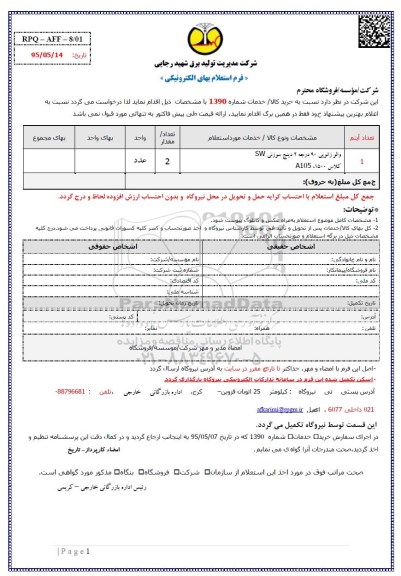 RPQ – AFF – 8/01
تاریخ: 95/05/14
شرکت مدیریت تولید برق شهید رجایی
« فرم استعلام بهای الکترونیکی »
شرکت/مؤسسه/فروشگاه محترم
این شرکت در نظر دارد نسبت به خرید کالا/ خدمات شماره 1390 با مشخصات ذیل اقدام نماید لذا درخواست می گردد نسبت به
اعلام بهترین پیشنهاد خود فقط در همین برگ اقدام نمایید، ارائه قیمت طی پیش فاکتور به تنهائی مورد قبول نمی باشد
شماره آیتم مشخصات ونوع کالا / خدمات مورداستعلام تعداد/ مقدار واحد بهای واحد بهای مجموع
1 ولو زانویی ۹۰ درجه ۲ اینچ سوزنی SW
کلاس ۱۵۰۰، A105 2 عدد
جمع کل مبلغ(به حروف):
جمع کل مبلغ استعلام با احتساب کرایه حمل و تحویل در محل نیروگاه و بدون احتساب ارزش افزوده لحاظ و درج گردد.
*توضیحات:
1- مشخصات کامل موضوع استعلام به‌همراه عکس و کاتالوگ پیوست شود.
2- کل بهای کالا/خدمات پس از تحویل و تائید فنی توسط کارشناس نیروگاه و اخذ صورتحساب و کسر کلیه کسورات قانونی پرداخت می شود.درج کلیه
مشخصات ذیل در برگه استعلام و صورتحساب الزامی است.
اشخاص حقیقی اشخاص حقوقی
نام و نام خانوادگی: نام مؤسسه/شرکت:
نام فروشگاه/پیمانکار: شماره ثبت شرکت:
کد ملی: کد اقتصادی:
شناسه ملی:
تاریخ تکمیل:
آدرس: کد پستی:
تلفن: همراه: نمابر:
امضاء مدیر و مهر شرکت/موسسه/فروشگاه
-اصل این فرم با امضاء و مهر، حداکثر تا تاریخ مقرر در سایت به آدرس نیروگاه ارسال گردد
-اسکن تکمیل شده این فرم در سامانه تدارکات الکترونیکی نیروگاه بارگذاری گردد.
آدرس پستی نیروگاه : کیلومتر 25 اتوبان قزوین– کرج، اداره بازرگانی خارجی ،تلفن : 88796681-
021 داخلی 6077 ، ایمیل
این قسمت توسط نیروگاه تکمیل می گردد.
در اجرای سفارش خرید□ خدمات□ شماره 1390 که در تاریخ 95/05/07 به اینجانب ارجاع گردید و در کمال دقت این پرسشنامه تنظیم و
اخذ گردید،صحت مندرجات آنرا گواه ی می نمایم. امضاء کارپرداز- تاریخ
صحت مراتب فوق در مورد اخذ این استعلام از سازمان□ شرکت□ فروشگاه□ بنگاه□ مذکور مورد گواهی است.
رئیس اداره بازرگانی خارجی – کریمی
Page 1
ParsNamadData
پایگاه اطلاع رسانی مناقصه و مزایده
۰۲۱-۸۸۳۴۹۶۷۰-۵